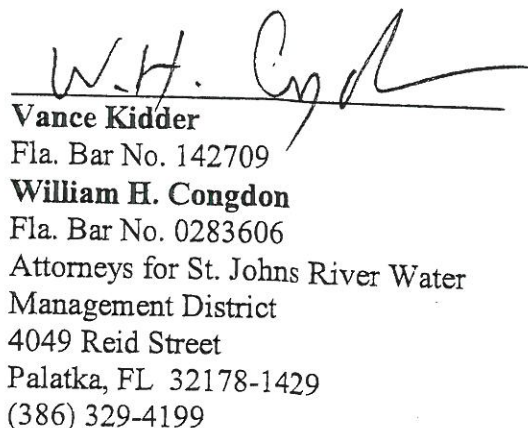 W.H. Congdon
Vance Kidder
Fla. Bar No. 142709
William H. Congdon
Fla. Bar No. 0283606
Attorneys for St. Johns River Water
Management District
4049 Reid Street
Palatka, FL 32178-1429
(386) 329-4199